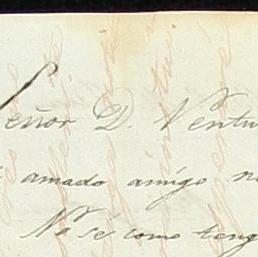 Señor D. Ventu
amado amigo
No sé como teng